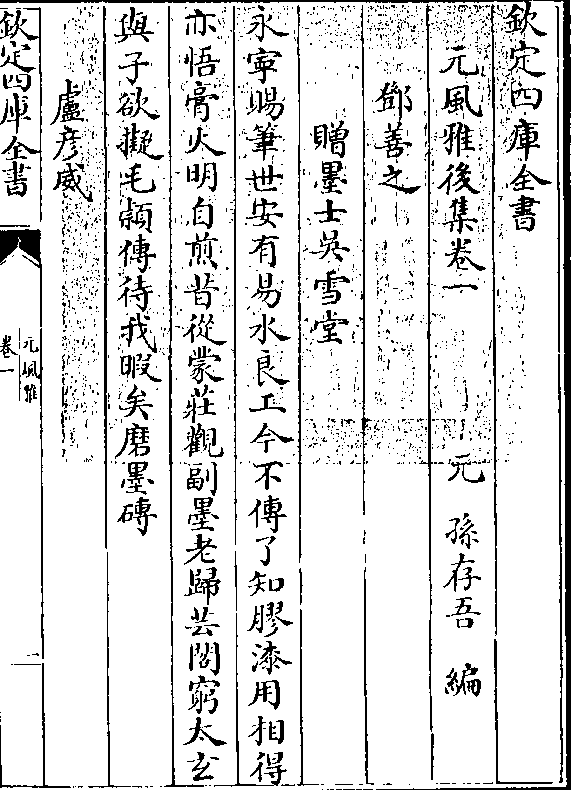 欽定四庫全書
元風雅後集卷一　元　孫存吾　編
鄧善之
贈墨士吳雪堂
永寧賜筆世安有易水良工今不傳了知膠漆用相得
亦悟膏火明自煎昔從蒙莊觀副墨老歸芸閣窮太玄
與子欲擬毛頴傳待我暇矣磨墨磚
盧彦威
欽定四庫全書
元風雅
卷一
一